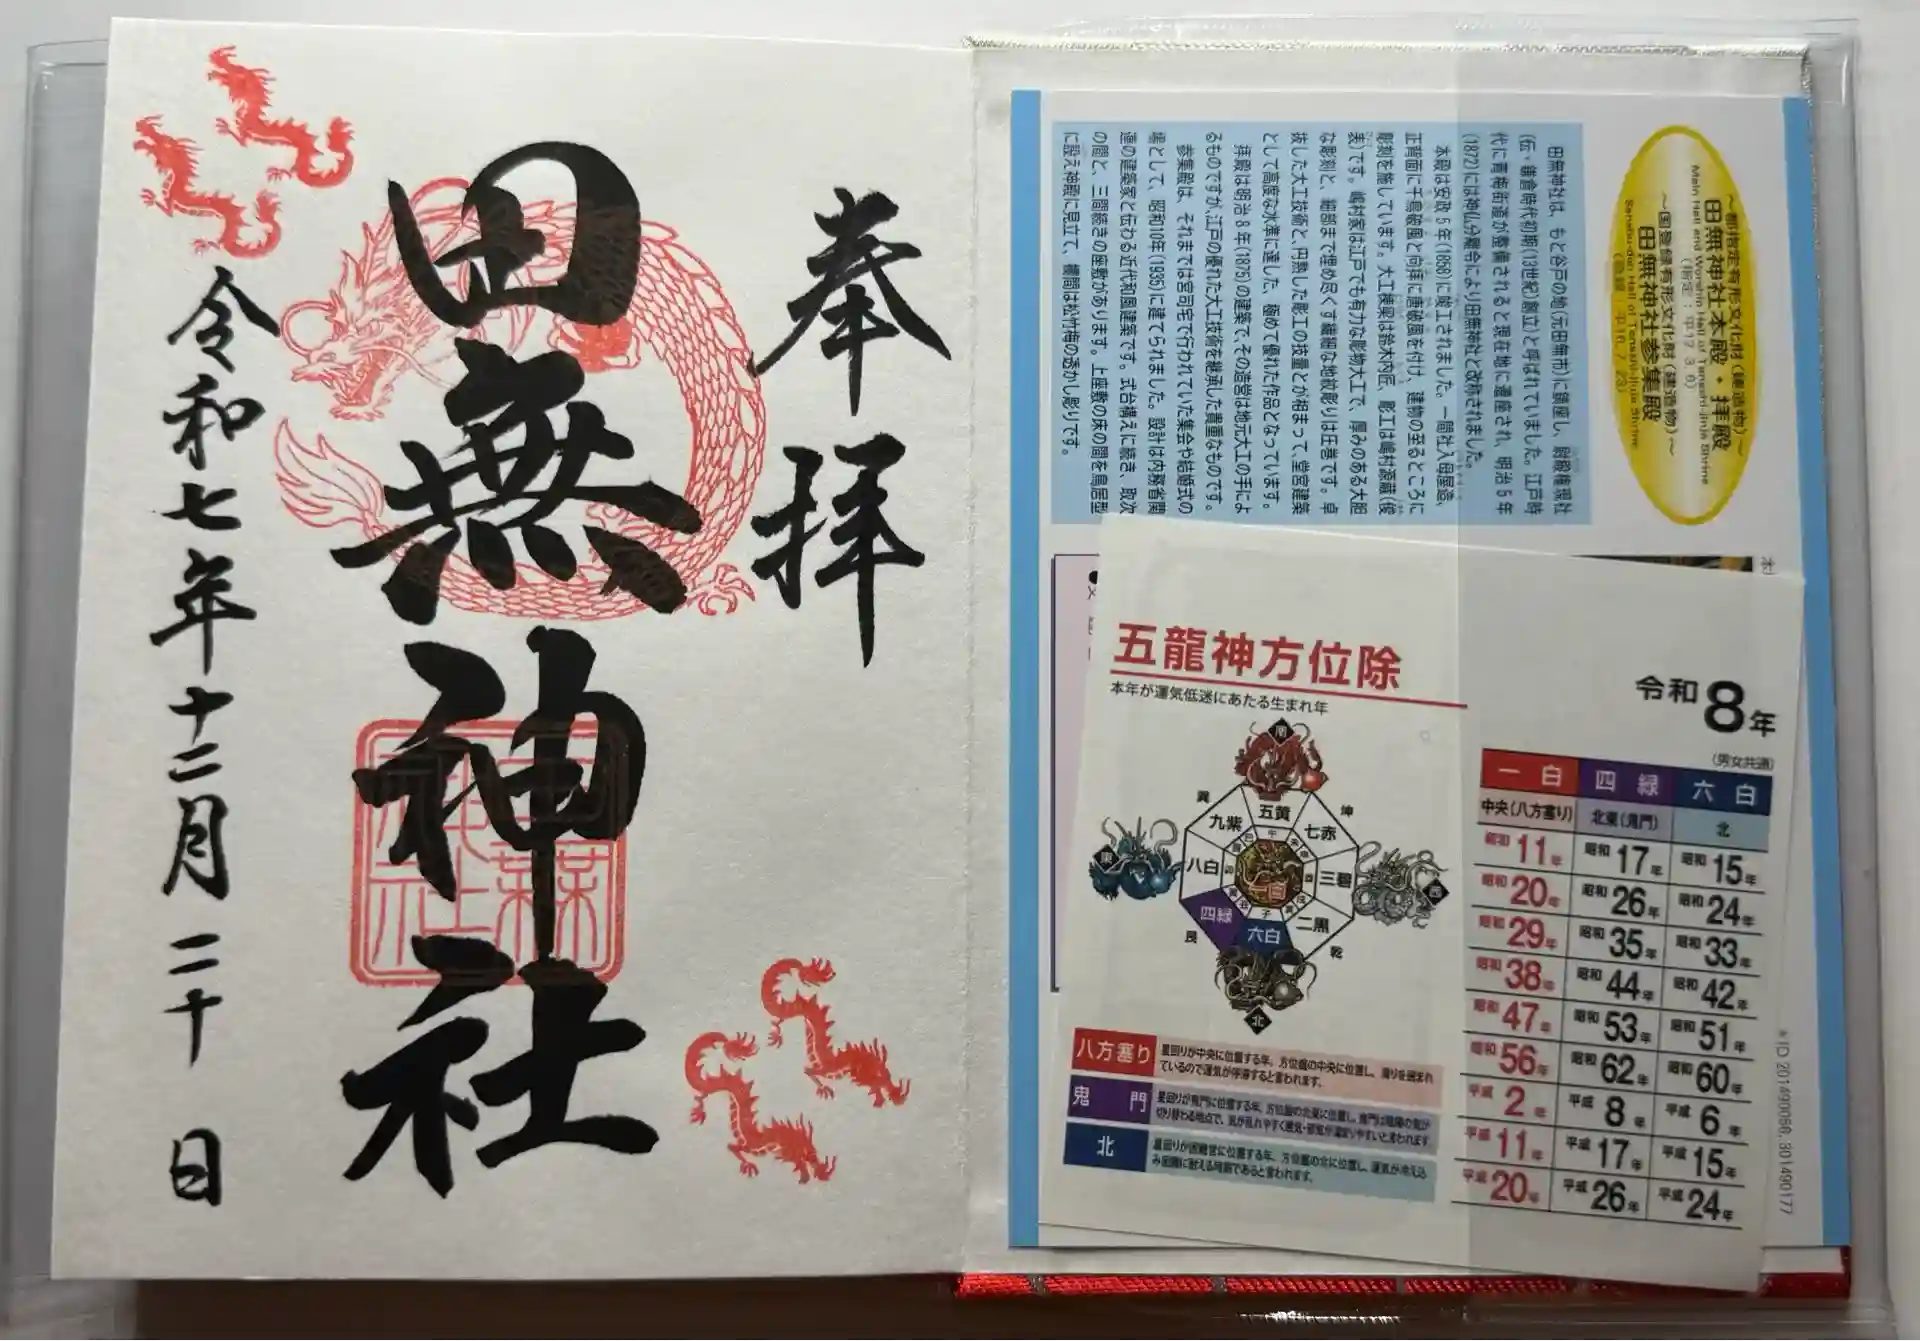 奉拝
田無神社
令和七年十二月二十日
～都指定有形文化財（建造物）～
田無神社本殿・拝殿
Main Hall and Worship Hall of Tanashi-jinja Shrine
～国登録有形文化財（建造物）～
田無神社参集殿
Sanshu-den Hall of Tanashi-jinja Shrine
田無神社は、もと谷戸の地(元田無市)に鎮座し、尉殿権現社
(伝・鎌倉時代初期(13世紀)創立)と呼ばれていました。江戸時
代に青梅街道が整備されると現在地に遷座され、明治5年
(1872)には神仏分離令により田無神社と改称されました。
本殿は安政5年(1858)に竣工されました。一間社入母屋造、
正背面に千鳥破風と向拝に唐破風を付け、建物の至るところに
彫刻を施しています。大工棟梁は鈴木内匠、彫工は嶋村源蔵(俊
表)です。嶋村家は江戸でも有力な彫物大工で、厚みのある大胆
な彫刻と、細部まで埋め尽くす繊細な地紋彫りは圧巻です。卓
抜した大工技術と、円熟した彫工の技量とが相まって、堂宮建築
として高度な水準に達した、極めて優れた作品となっています。
拝殿は明治8年(1875)の建築で、その造営は地元大工の手によ
るものですが、江戸の優れた大工技術を継承した貴重なものです。
参集殿は、それまでは宮司宅で行われていた集会や結婚式の
場として、昭和10年(1935)に建てられました。設計は内務省関
連の建築家と伝わる近代和風建築です。式台構えに続き、取次
の間と、三間続きの座敷があります。上座敷の床の間を鳥居型
に設え神殿に見立て、欄間は松竹梅の透かし彫りです。
五龍神方位除
本年が運気低迷にあたる生まれ年
令和8年
(男女共通)
南
巽 五黄 坤
九紫 七赤
東 八白 一白 三碧 西
四緑 六白 二黒
艮 乾
北
一白 四緑 六白
中央(八方塞り) 北東(鬼門) 北
昭和11年 昭和17年 昭和15年
昭和20年 昭和26年 昭和24年
昭和29年 昭和35年 昭和33年
昭和38年 昭和44年 昭和42年
昭和47年 昭和53年 昭和51年
昭和56年 昭和62年 昭和60年
平成2年 平成8年 平成6年
平成11年 平成17年 平成15年
平成20年 平成26年 平成24年
八方塞り
星回りが中央に位置する年、方位盤の中央に位置し、周りを囲まれ
ているので運気が停滞すると言われます。
鬼門
星回りが鬼門に位置する年、方位盤の北東に位置し、
北
星回りが困難宮に位置する年、方位盤の北に位置し、運気が冷え込
み困難に耐える時期であると言われます。